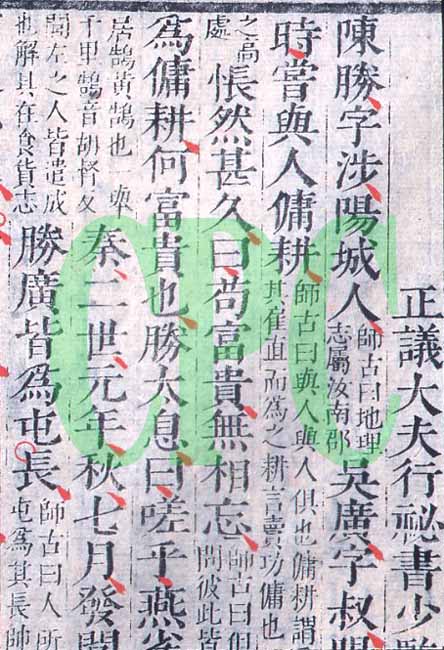 正議大夫行祕書少
陳勝字涉陽城人師古曰地理志屬汝南郡吳廣字叔
時嘗與人傭耕師古曰與人與人俱也傭耕謂其雇直而爲之耕言賣功傭也
之高處悵然甚久曰苟富貴無相忘師古曰但問彼此皆
爲傭耕何富貴也勝太息曰嗟乎燕雀
居鵠黃鵠也一舉千里鵠音胡督反秦二世元年秋七月發閭
閭左之人皆遣戍也解具在食貨志勝廣皆爲屯長師古曰人所屯爲其長帥
CPC